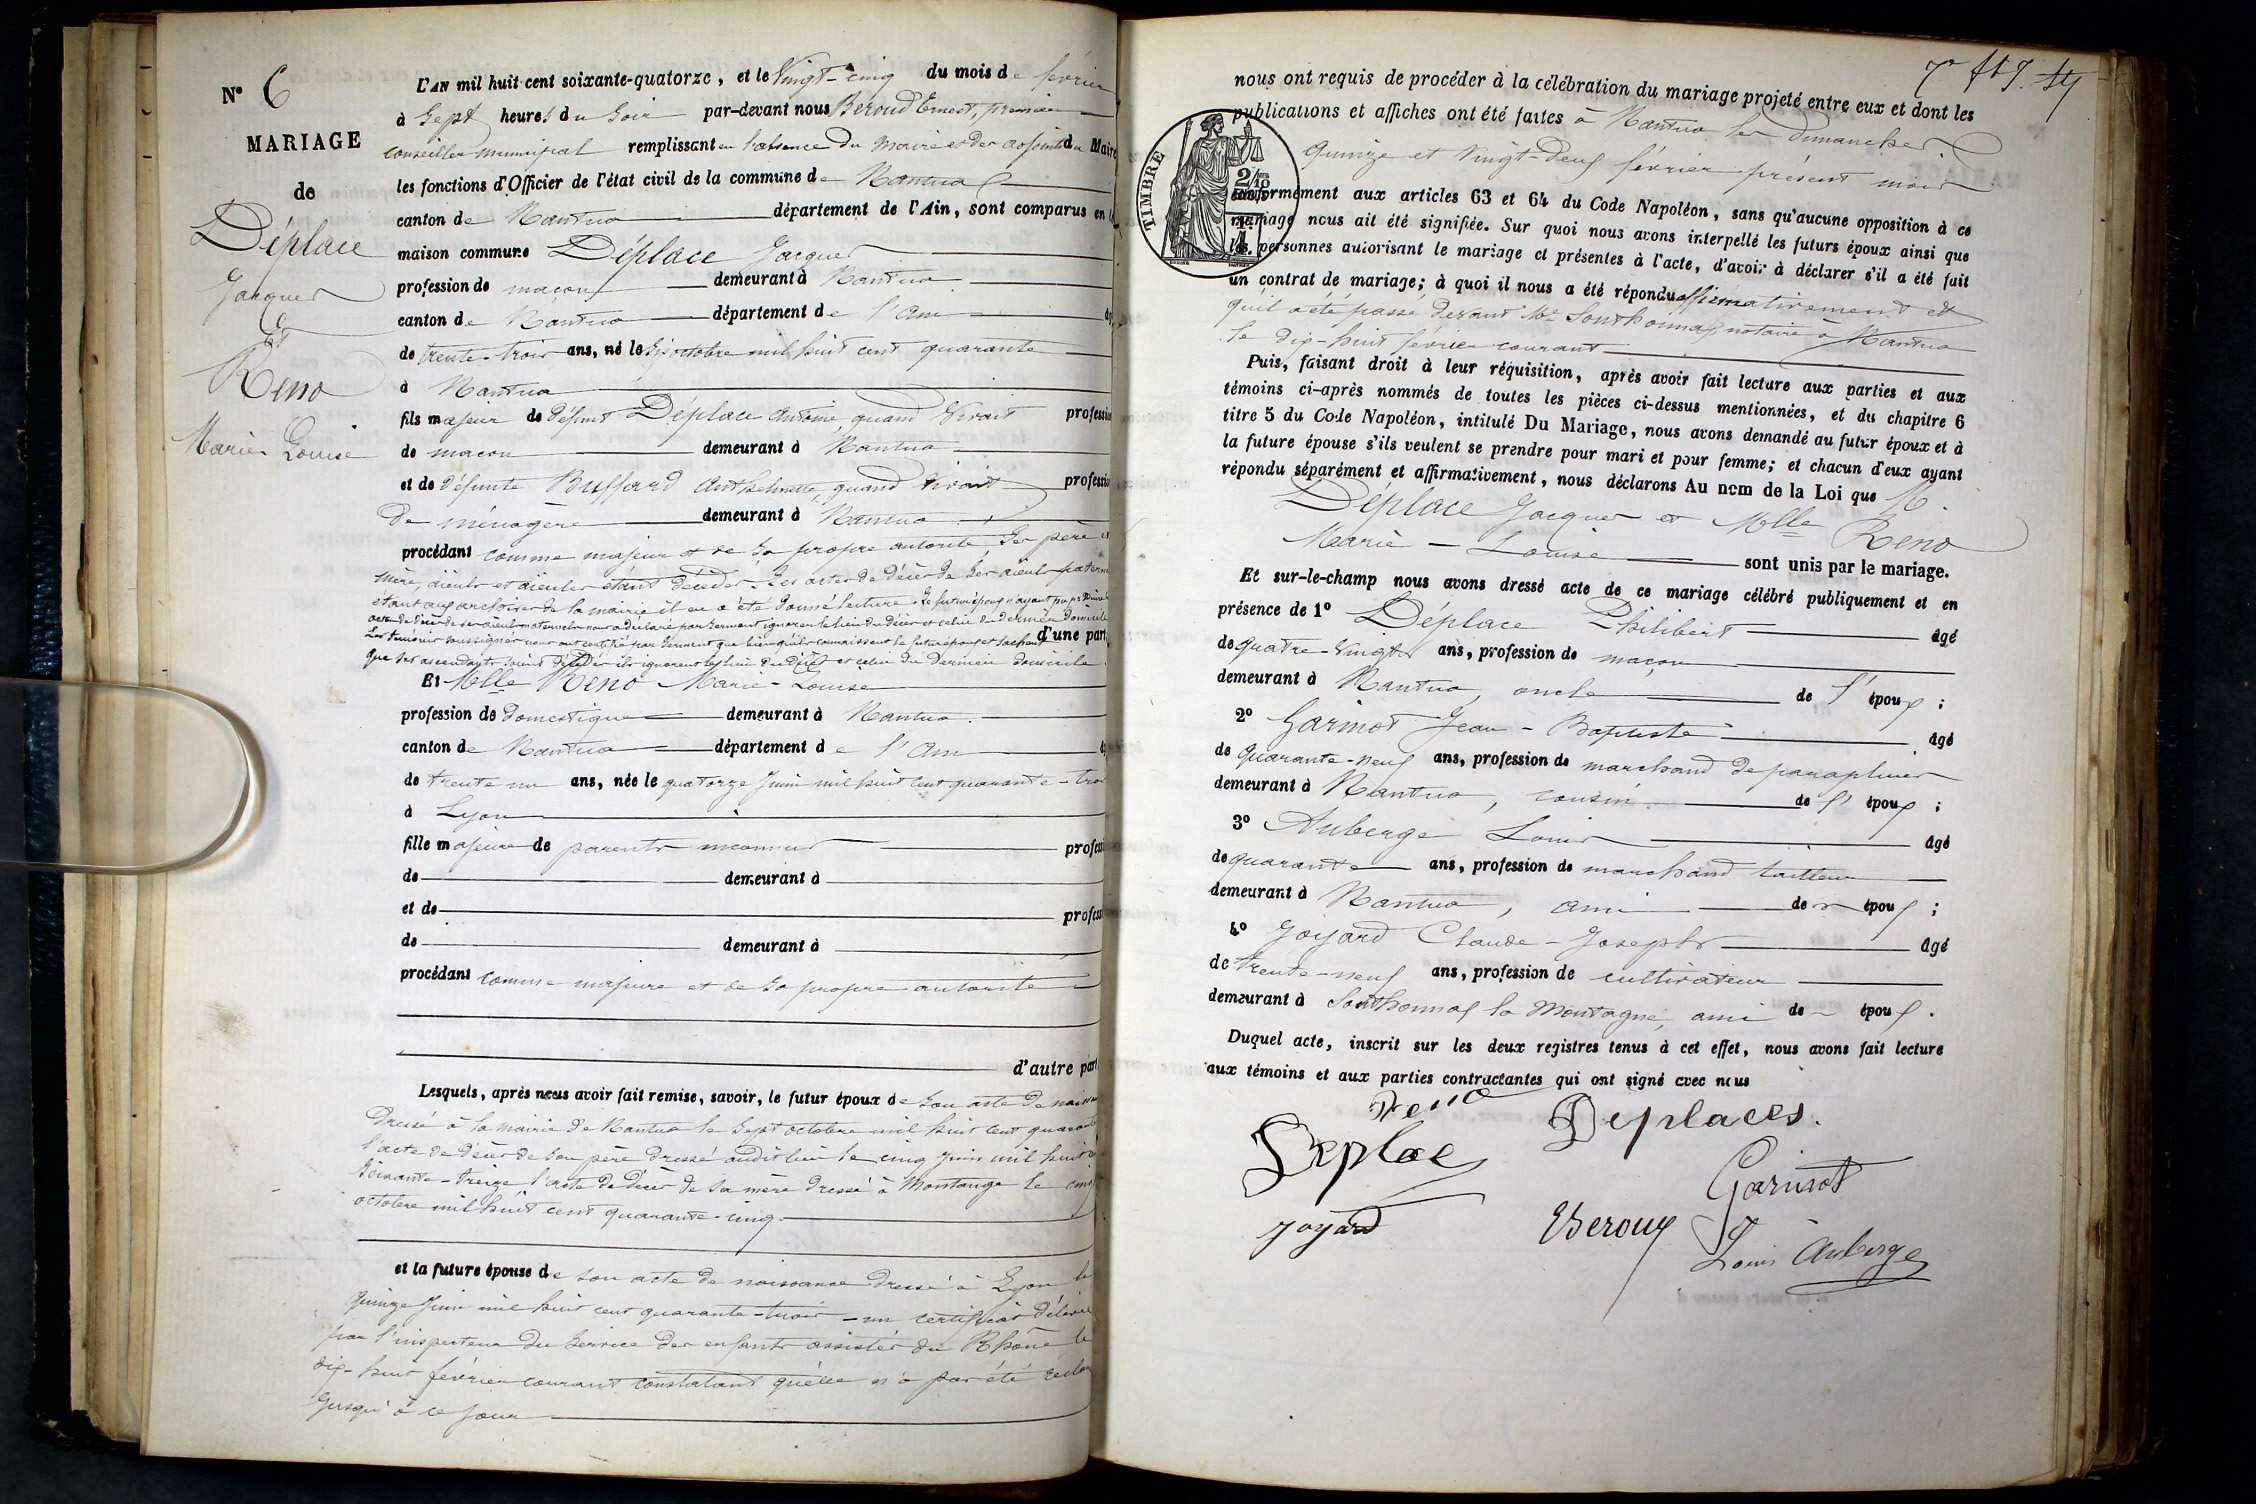 N° 6
MARIAGE
de
Déplace
Jacques
Et
Reno
Marie Louise
L'AN mil huit cent soixante-quatorze, et le Vingt-cinq du mois de février
à Sept heures du Soir par-devant nous Beroud Ernest, premier
conseiller municipal remplissant en l'absence du Maire et des adjoints du Maire
les fonctions d'Officier de l'état civil de la commune de Nantua
canton de Nantua département de l'Ain, sont comparus en la
maison commune Déplace Jacques
profession de maçon demeurant à Nantua
canton de Nantua département de l'Ain
de trente-trois ans, né le Six octobre mil huit cent quarante
à Nantua
fils majeur de défunt Déplace Antoine quand Vivait profession
de maçon demeurant à Nantua
et de défunte Buffard Anthelmette, quand Vivait profession
de ménagère demeurant à Nantua
procédant comme majeur et de Sa propre autorité Ses père et
mère, aïeuls et aïeules étant décédés. Les actes de décès de Ses aïeuls paternels
étant aux archives de la mairie il en a été donné lecture. Le futur époux n'ayant pu produire les
actes de décès de ses aïeuls maternels nous a déclaré par Serment ignorer le lieu du décès et celui du dernier domicile
Les témoins soussignés nous ont certifié par Serment que bien qu'ils connaissent le futur époux et sachant d'une part;
que ses ascendants soient décédés ils ignorent le lieu du décès et celui du dernier domicile
Et Melle Reno Marie-Louise
profession de domestique demeurant à Nantua
canton de Nantua département de l'Ain
de trente un ans, née le quatorze Juin mil huit cent quarante-trois
à Lyon
fille majeure de parents inconnus profession
de demeurant à
et de profession
de demeurant à
procédant comme majeure et de Sa propre autorité
d'autre part
Lesquels, après nous avoir fait remise, savoir, le futur époux de Son acte de naissance
dressé à la Mairie de Nantua le Sept octobre mil huit cent quarante
l'acte de décès de Son père dressé audit lieu le cinq Juin mil huit cent
Soixante-treize l'acte de décès de Sa mère dressé à Montange le cinq
octobre mil huit cent quarante-cinq
et la future épouse de Son acte de naissance dressé à Lyon le
quinze Juin mil huit cent quarante-trois - un certificat délivré
par l'inspecteur du Service des enfants assistés du Rhône le
dix-huit février courant constatant qu'elle n'a pas été réclamée
Jusqu'à ce Jour
nous ont requis de procéder à la célébration du mariage projeté entre eux et dont les
publications et affiches ont été faites à Nantua les dimanches
quinze et Vingt-deux février présent mois
TIMBRE
2/10
conformément aux articles 63 et 64 du Code Napoléon, sans qu'aucune opposition à ce
mariage nous ait été signifiée. Sur quoi nous avons interpellé les futurs époux ainsi que
les personnes autorisant le mariage et présentes à l'acte, d'avoir à déclarer s'il a été fait
un contrat de mariage; à quoi il nous a été répondu affirmativement et
qu'il a été passé devant Me Southonnax notaire à Nantua
le dix-huit février courant
Puis, faisant droit à leur réquisition, après avoir fait lecture aux parties et aux
témoins ci-après nommés de toutes les pièces ci-dessus mentionnées, et du chapitre 6
titre 5 du Code Napoléon, intitulé Du Mariage, nous avons demandé au futur époux et à
la future épouse s'ils veulent se prendre pour mari et pour femme; et chacun d'eux ayant
répondu séparément et affirmativement, nous déclarons Au nom de la Loi que M.
Déplace Jacques et Melle Reno
Marie-Louise sont unis par le mariage.
Et sur-le-champ nous avons dressé acte de ce mariage célébré publiquement et en
présence de 1° Déplace Philibert âgé
de quatre-Vingts ans, profession de maçon
demeurant à Nantua, oncle de l'époux;
2° Garinot Jean-Baptiste âgé
de quarante-neuf ans, profession de marchand de parapluies
demeurant à Nantua, cousin de l'époux;
3° Auberge Louis âgé
de quarante ans, profession de marchand tailleur
demeurant à Nantua, ami des époux;
4° Joyard Claude-Joseph âgé
de trente-neuf ans, profession de cultivateur
demeurant à Southonnax la Montagne, ami des époux.
Duquel acte, inscrit sur les deux registres tenus à cet effet, nous avons fait lecture
aux témoins et aux parties contractantes qui ont signé avec nous
Reno
Deplace
Deplaces.
Garinot
Joyard
EBeroud
Louis Auberge